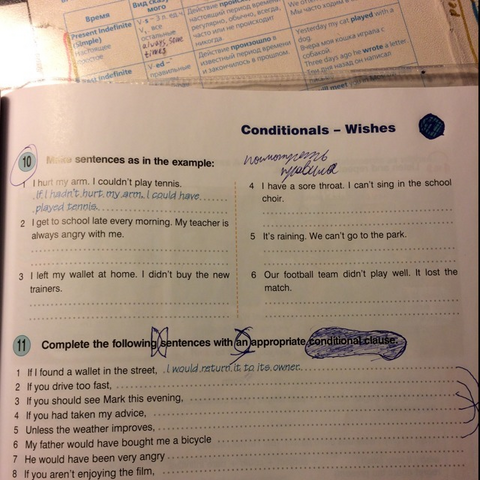 Время
Вид сказу
Present Indefinite
(Simple)
настоящее
простое
V-s – 3 л. ед. ч
V, все
остальные
Действие происх
настоящий период времени
регулярно, обычно, всегда
часто или не происходит
никогда
Мы часто ходим в
Past Indefinite
V-ed –
правильные
Действие произошло в
известный период времени
и закончилось в прошлом.
Yesterday my cat played with a
dog.
Вчера моя кошка играла с
собакой.
Three days ago he wrote a letter.
Три дня назад он написал
Conditionals – Wishes
посмотреть
правила
10 Make sentences as in the example:
1 I hurt my arm. I couldn't play tennis.
If I hadn't hurt my arm, I could have
played tennis.
2 I get to school late every morning. My teacher is
always angry with me.
3 I left my wallet at home. I didn't buy the new
trainers.
4 I have a sore throat. I can't sing in the school
choir.
5 It's raining. We can't go to the park.
6 Our football team didn't play well. It lost the
match.
11 Complete the following sentences with an appropriate conditional clause.
1 If I found a wallet in the street, I would return it to its owner.
2 If you drive too fast,
3 If you should see Mark this evening,
4 If you had taken my advice,
5 Unless the weather improves,
6 My father would have bought me a bicycle
7 He would have been very angry
8 If you aren't enjoying the film,